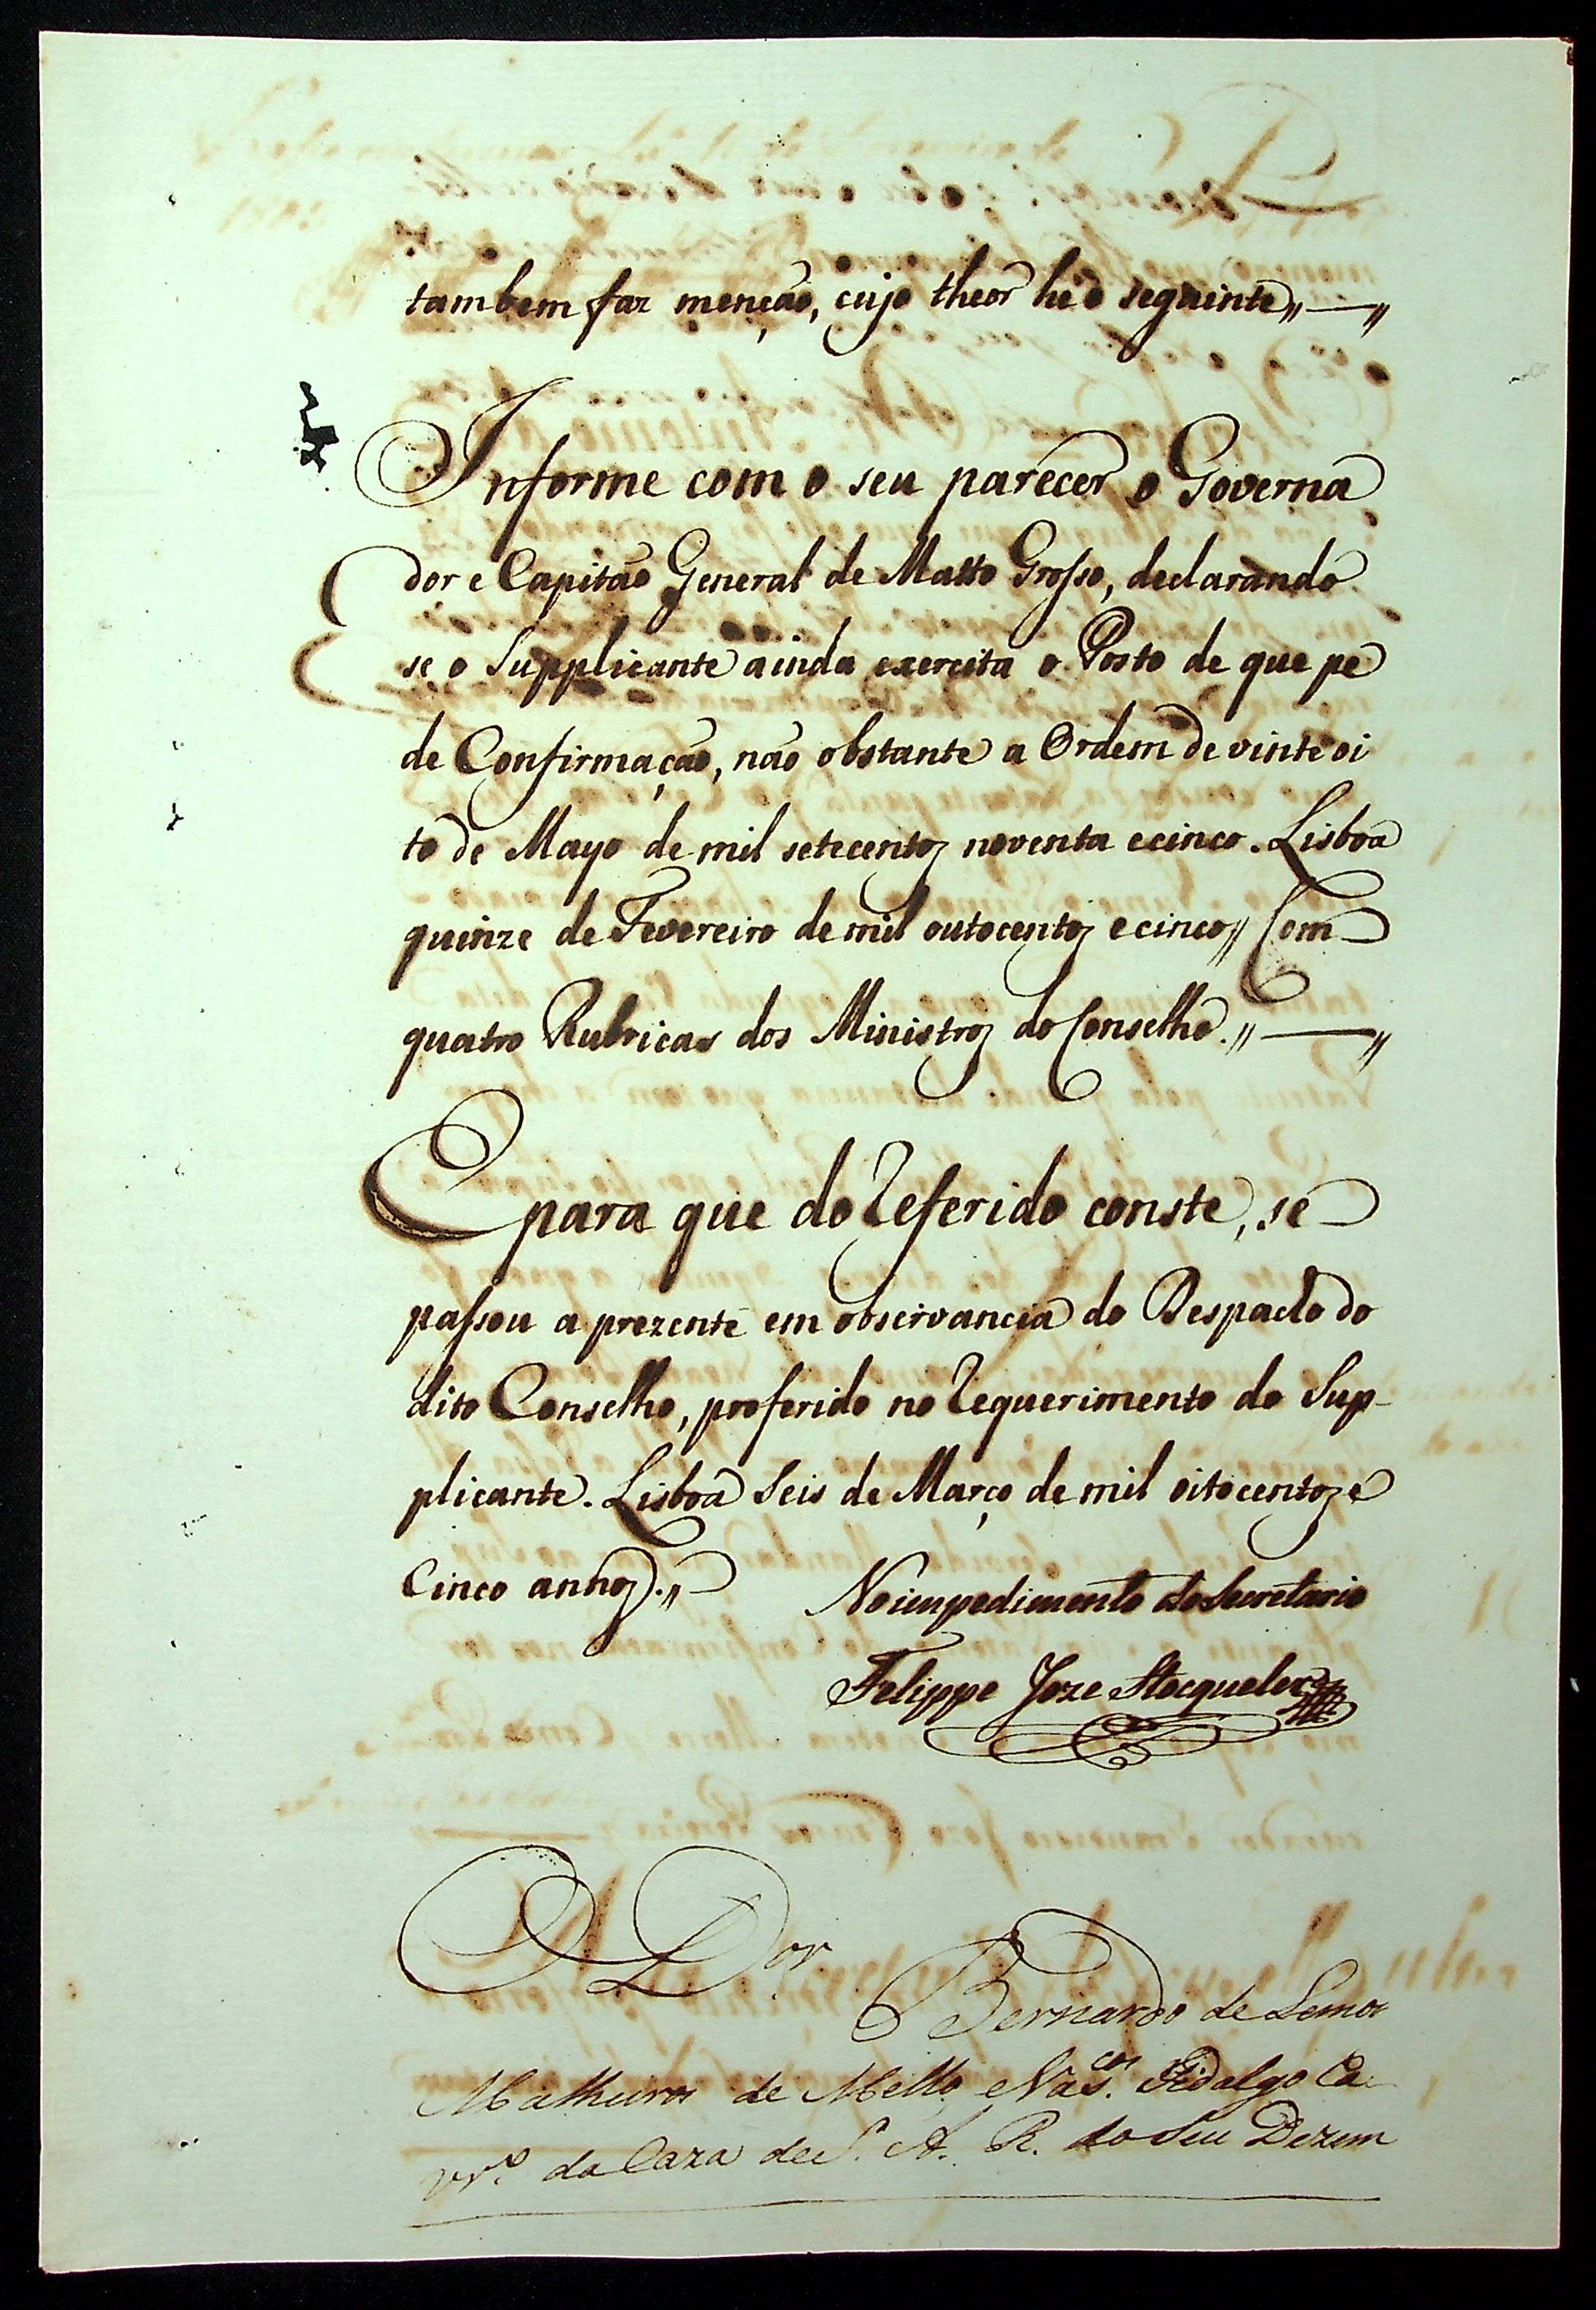 tambem faz menção, cujo theor he o seguinte,,—,,
Informe com o seu parecer o Governa
dor e Capitão General de Matto Grosso, declarando
se o Supplicante ainda exercita o Posto de que pe
de Confirmação, não obstante a Ordem de vinte oi
to de Mayo de mil setecentos noventa e cinco. Lisboa
quinze de Fevereiro de mil outocentos e cinco,, Com
quatro Rubricas dos Ministros do Conselho.,,—,,
E para que do referido conste, se
passou a prezente em observancia do Despacho do
dito Conselho, proferido no requerimento do Sup-
plicante. Lisboa Seis de Março de mil oitocentos e
Cinco annos.,,
No impedimento do Secretario
Felippe Joze Stocqueler
O Dor
Bernardo de Lemos
de Mello, e Vascos. Fidalgo Ca
vro. da Caza de S. A. R. do Seu Dezem